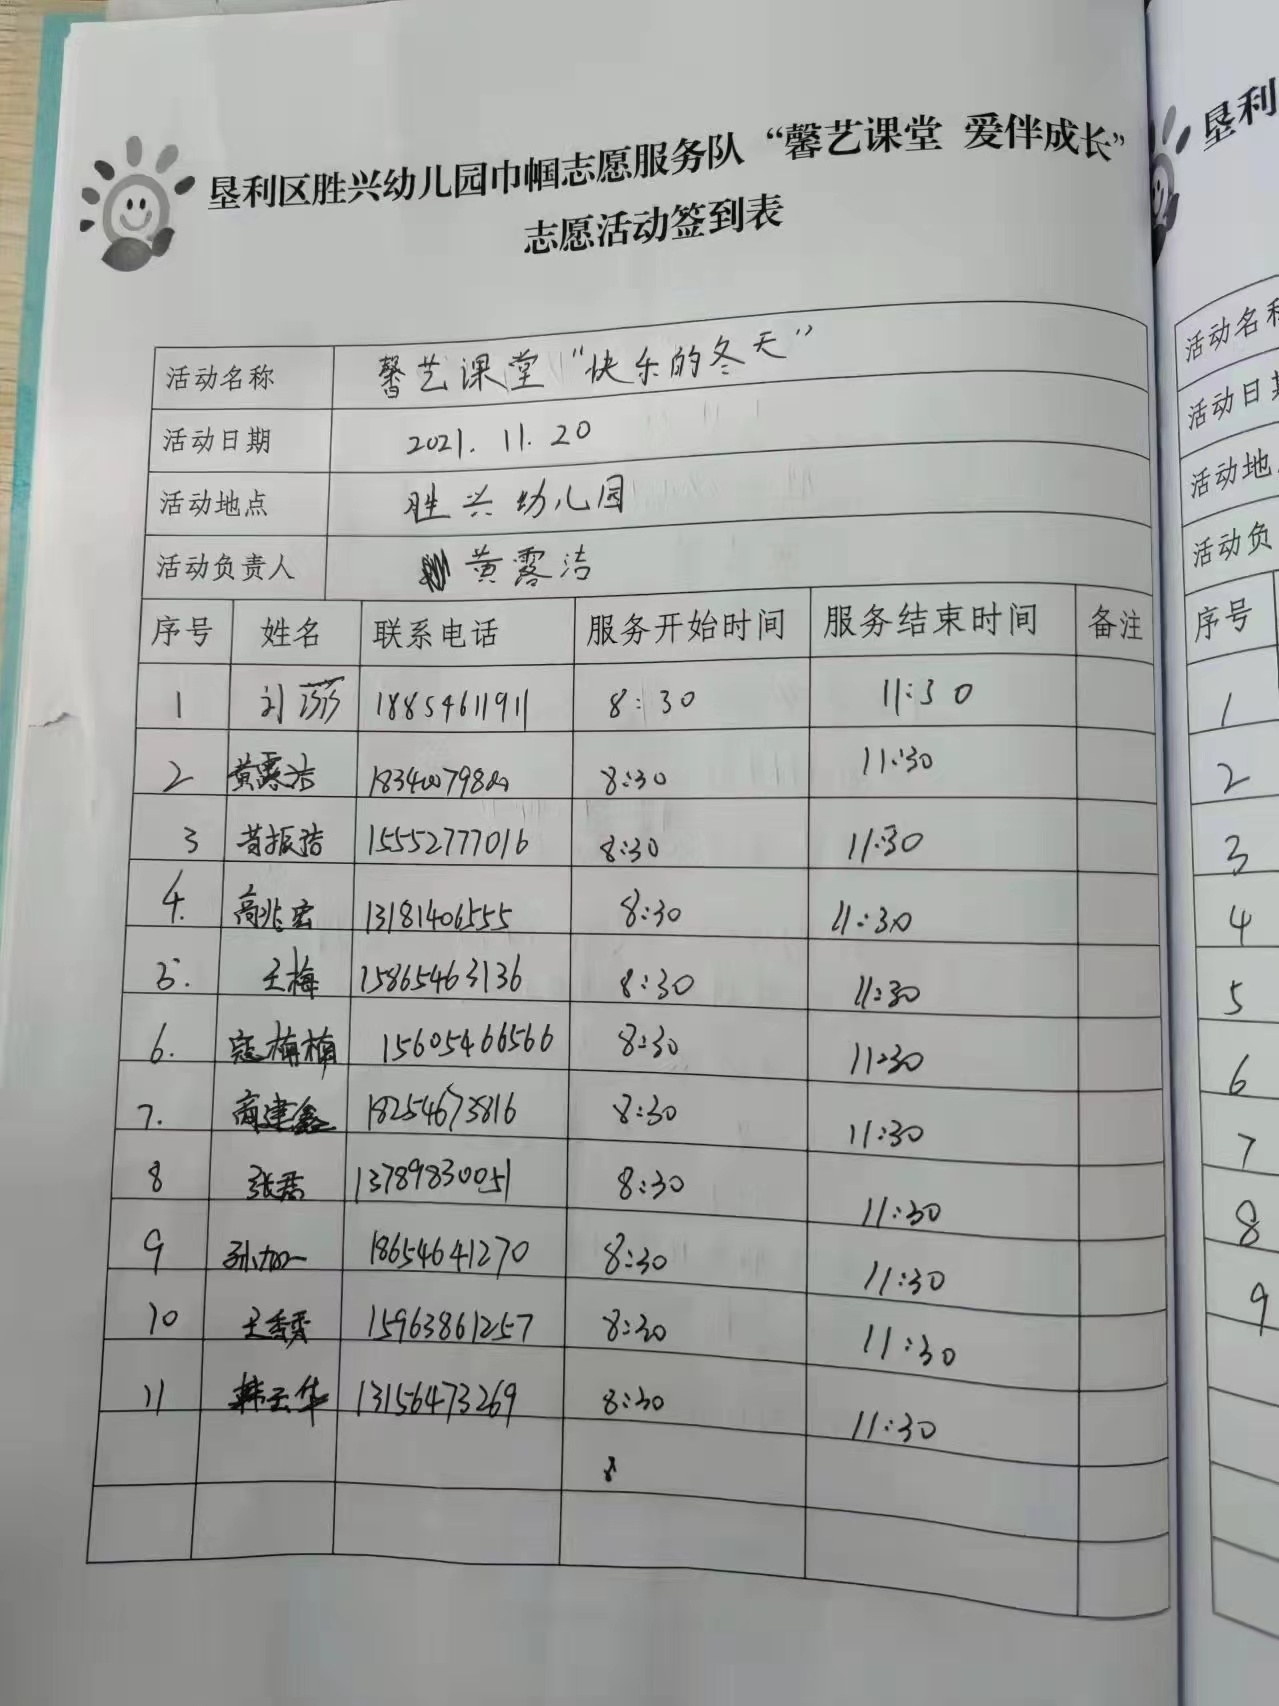 垦利区胜兴幼儿园巾帼志愿服务队“馨艺课堂 爱伴成长”
志愿活动签到表
活动名称 馨艺课堂“快乐的冬天”
活动日期 2021.11.20
活动地点 胜兴幼儿园
活动负责人 黄露洁
序号 姓名 联系电话 服务开始时间 服务结束时间 备注
1 刘莎 18854611911 8:30 11:30
2 黄露洁 8:30 11:30
3 15552777016 8:30 11:30
4. 高兆宏 13181406555 8:30 11:30
5. 王梅 15865463136 8:30 11:30
6. 寇楠楠 15605466566 8:30 11:30
7. 商建鑫 18254673816 8:30 11:30
8 张君 13789830051 8:30 11:30
9 孙加一 18654641270 8:30 11:30
10 王秀秀 15963861257 8:30 11:30
11 韩云华 13156473269 8:30 11:30
8
垦利
活动名称
活动日期
活动地
活动负
序号
1
2
3
4
5
6
7
8
9